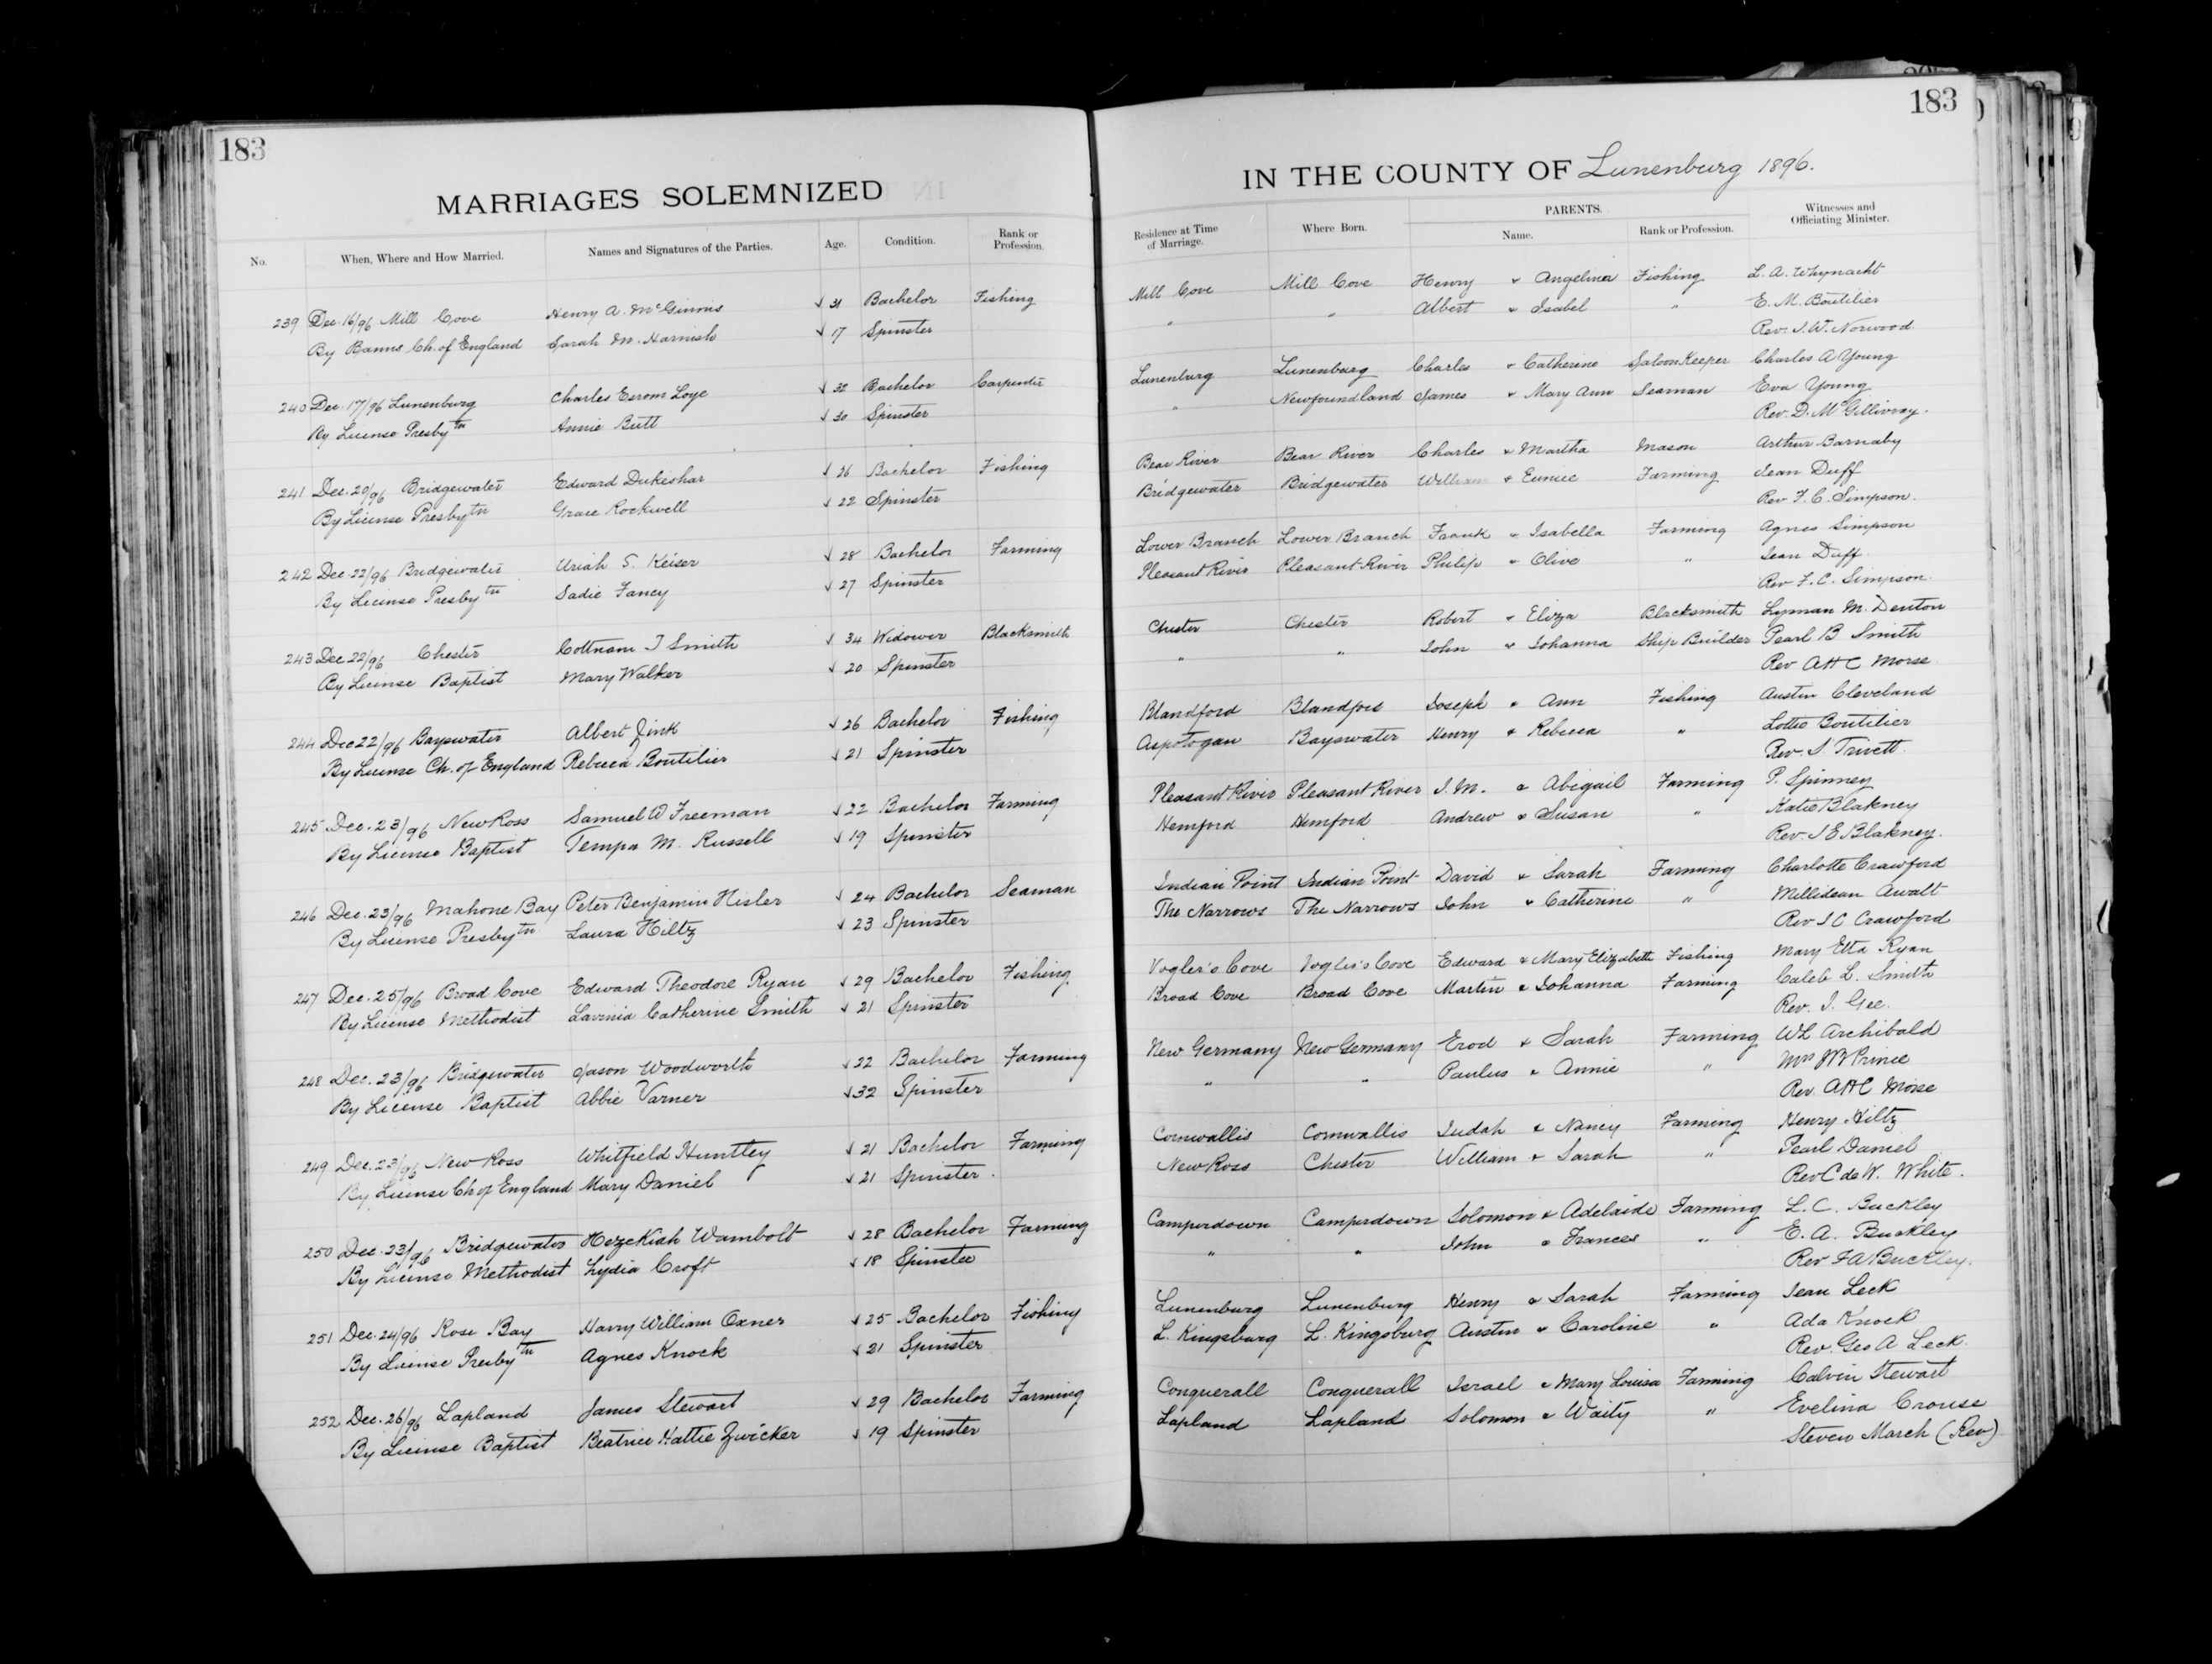 183
MARRIAGES SOLEMNIZED
No. When, Where and How Married. Names and Signatures of the Parties. Age. Condition. Rank or Profession.
239 Dec. 16/96 Mill Cove Henry A. McGinnis 31 Bachelor Fishing
By Banns Ch. of England Sarah M. Harnish 17 Spinster
240 Dec. 17/96 Lunenburg Charles Esrom Loye 32 Bachelor Carpenter
By License Presbytn Annie Butt 30 Spinster
241 Dec. 20/96 Bridgewater Edward Dukeshar 26 Bachelor Fishing
By License Presbytn Grace Rockwell 22 Spinster
242 Dec. 22/96 Bridgewater Uriah S. Keiser 28 Bachelor Farming
By License Presbytn Sadie Fancy 27 Spinster
243 Dec 22/96 Chester Cottnam I Smith 34 Widower Blacksmith
By License Baptist Mary Walker 20 Spinster
244 Dec 22/96 Bayswater Albert Zink 26 Bachelor Fishing
By License Ch. of England Rebecca Boutilier 21 Spinster
245 Dec. 23/96 New Ross Samuel D Freeman 22 Bachelor Farming
By License Baptist Tempa M. Russell 19 Spinster
246 Dec. 23/96 Mahone Bay Peter Benjamin Hisler 24 Bachelor Seaman
By License Presbytn Laura Hiltz 23 Spinster
247 Dec. 25/96 Broad Cove Edward Theodore Ryan 29 Bachelor Fishing
By License Methodist Lavinia Catherine Smith 21 Spinster
248 Dec. 23/96 Bridgewater Jason Woodworth 22 Bachelor Farming
By License Baptist Abbie Varner 32 Spinster
249 Dec. 23/96 New Ross Whitfield Huntley 21 Bachelor Farming
By License Ch of England Mary Daniel 21 Spinster.
250 Dec. 23/96 Bridgewater Hezekiah Wambolt 28 Bachelor Farming
By License Methodist Lydia Croft 18 Spinster
251 Dec. 24/96 Rose Bay Harry William Oxner 25 Bachelor Fishing
By License Presbytn Agnes Knock 21 Spinster
252 Dec. 26/96 Lapland James Stewart 29 Bachelor Farming
By License Baptist Beatrice Hattie Zwicker 19 Spinster
183
IN THE COUNTY OF Lunenburg 1896.
Residence at Time of Marriage. Where Born. PARENTS. Name. Rank or Profession. Witnesses and Officiating Minister.
Mill Cove Mill Cove Henry & Angelina Fishing L. A. Whynacht
" " Albert & Isabel " E. M. Boutilier
Rev. I. W. Norwood
Lunenburg Lunenburg Charles & Catherine Saloon Keeper Charles A Young
" Newfoundland James & Mary Ann Seaman Eva Young
Rev. D. McGillivray.
Bear River Bear River Charles & Martha Mason Arthur Barnaby
Bridgewater Bridgewater William & Eunice Farming Jean Duff
Rev F. C. Simpson.
Lower Branch Lower Branch Frank & Isabella Farming Agnes Simpson
Pleasant River Pleasant River Philip & Olive " Jean Duff
Rev F. C. Simpson.
Chester Chester Robert & Eliza Blacksmith Lyman M. Denton
" " John & Johanna Ship Builder Pearl B Smith
Rev A H C Morse
Blandford Blandford Joseph & Ann Fishing Austin Cleveland
Aspotogan Bayswater Henry & Rebecca " Lottie Boutilier
Rev. I Trivett.
Pleasant River Pleasant River I. M. & Abigail Farming P. Spinney
Hemford Hemford Andrew & Susan " Katie Blakney
Rev. I E Blakney.
Indian Point Indian Point David & Sarah Farming Charlotte Crawford
The Narrows The Narrows John & Catherine " Millidean Awalt
Rev I C Crawford
Vogler's Cove Vogler's Cove Edward & Mary Elizabeth Fishing Mary Etta Ryan
Broad Cove Broad Cove Martin & Johanna Farming Caleb L. Smith
Rev. I. Gee.
New Germany New Germany Erod & Sarah Farming W L Archibald
" " Paulus & Annie " Mrs J W Prince
Rev. A H C Morse
Cornwallis Cornwallis Judah & Nancy Farming Henry Hiltz
New Ross Chester William & Sarah " Pearl Daniel
Rev C de W. White.
Camperdown Camperdown Solomon & Adelaide Farming L. C. Buckley
" " John & Frances " E. A. Buckley
Rev F A Buckley.
Lunenburg Lunenburg Henry & Sarah Farming Jean Leck
L. Kingsburg L. Kingsburg Austin & Caroline " Ada Knock
Rev. Geo A Leck.
Conquerall Conquerall Israel & Mary Louisa Farming Calvin Stewart
Lapland Lapland Solomon & Waity " Evelina Crouse
Steven March (Rev)